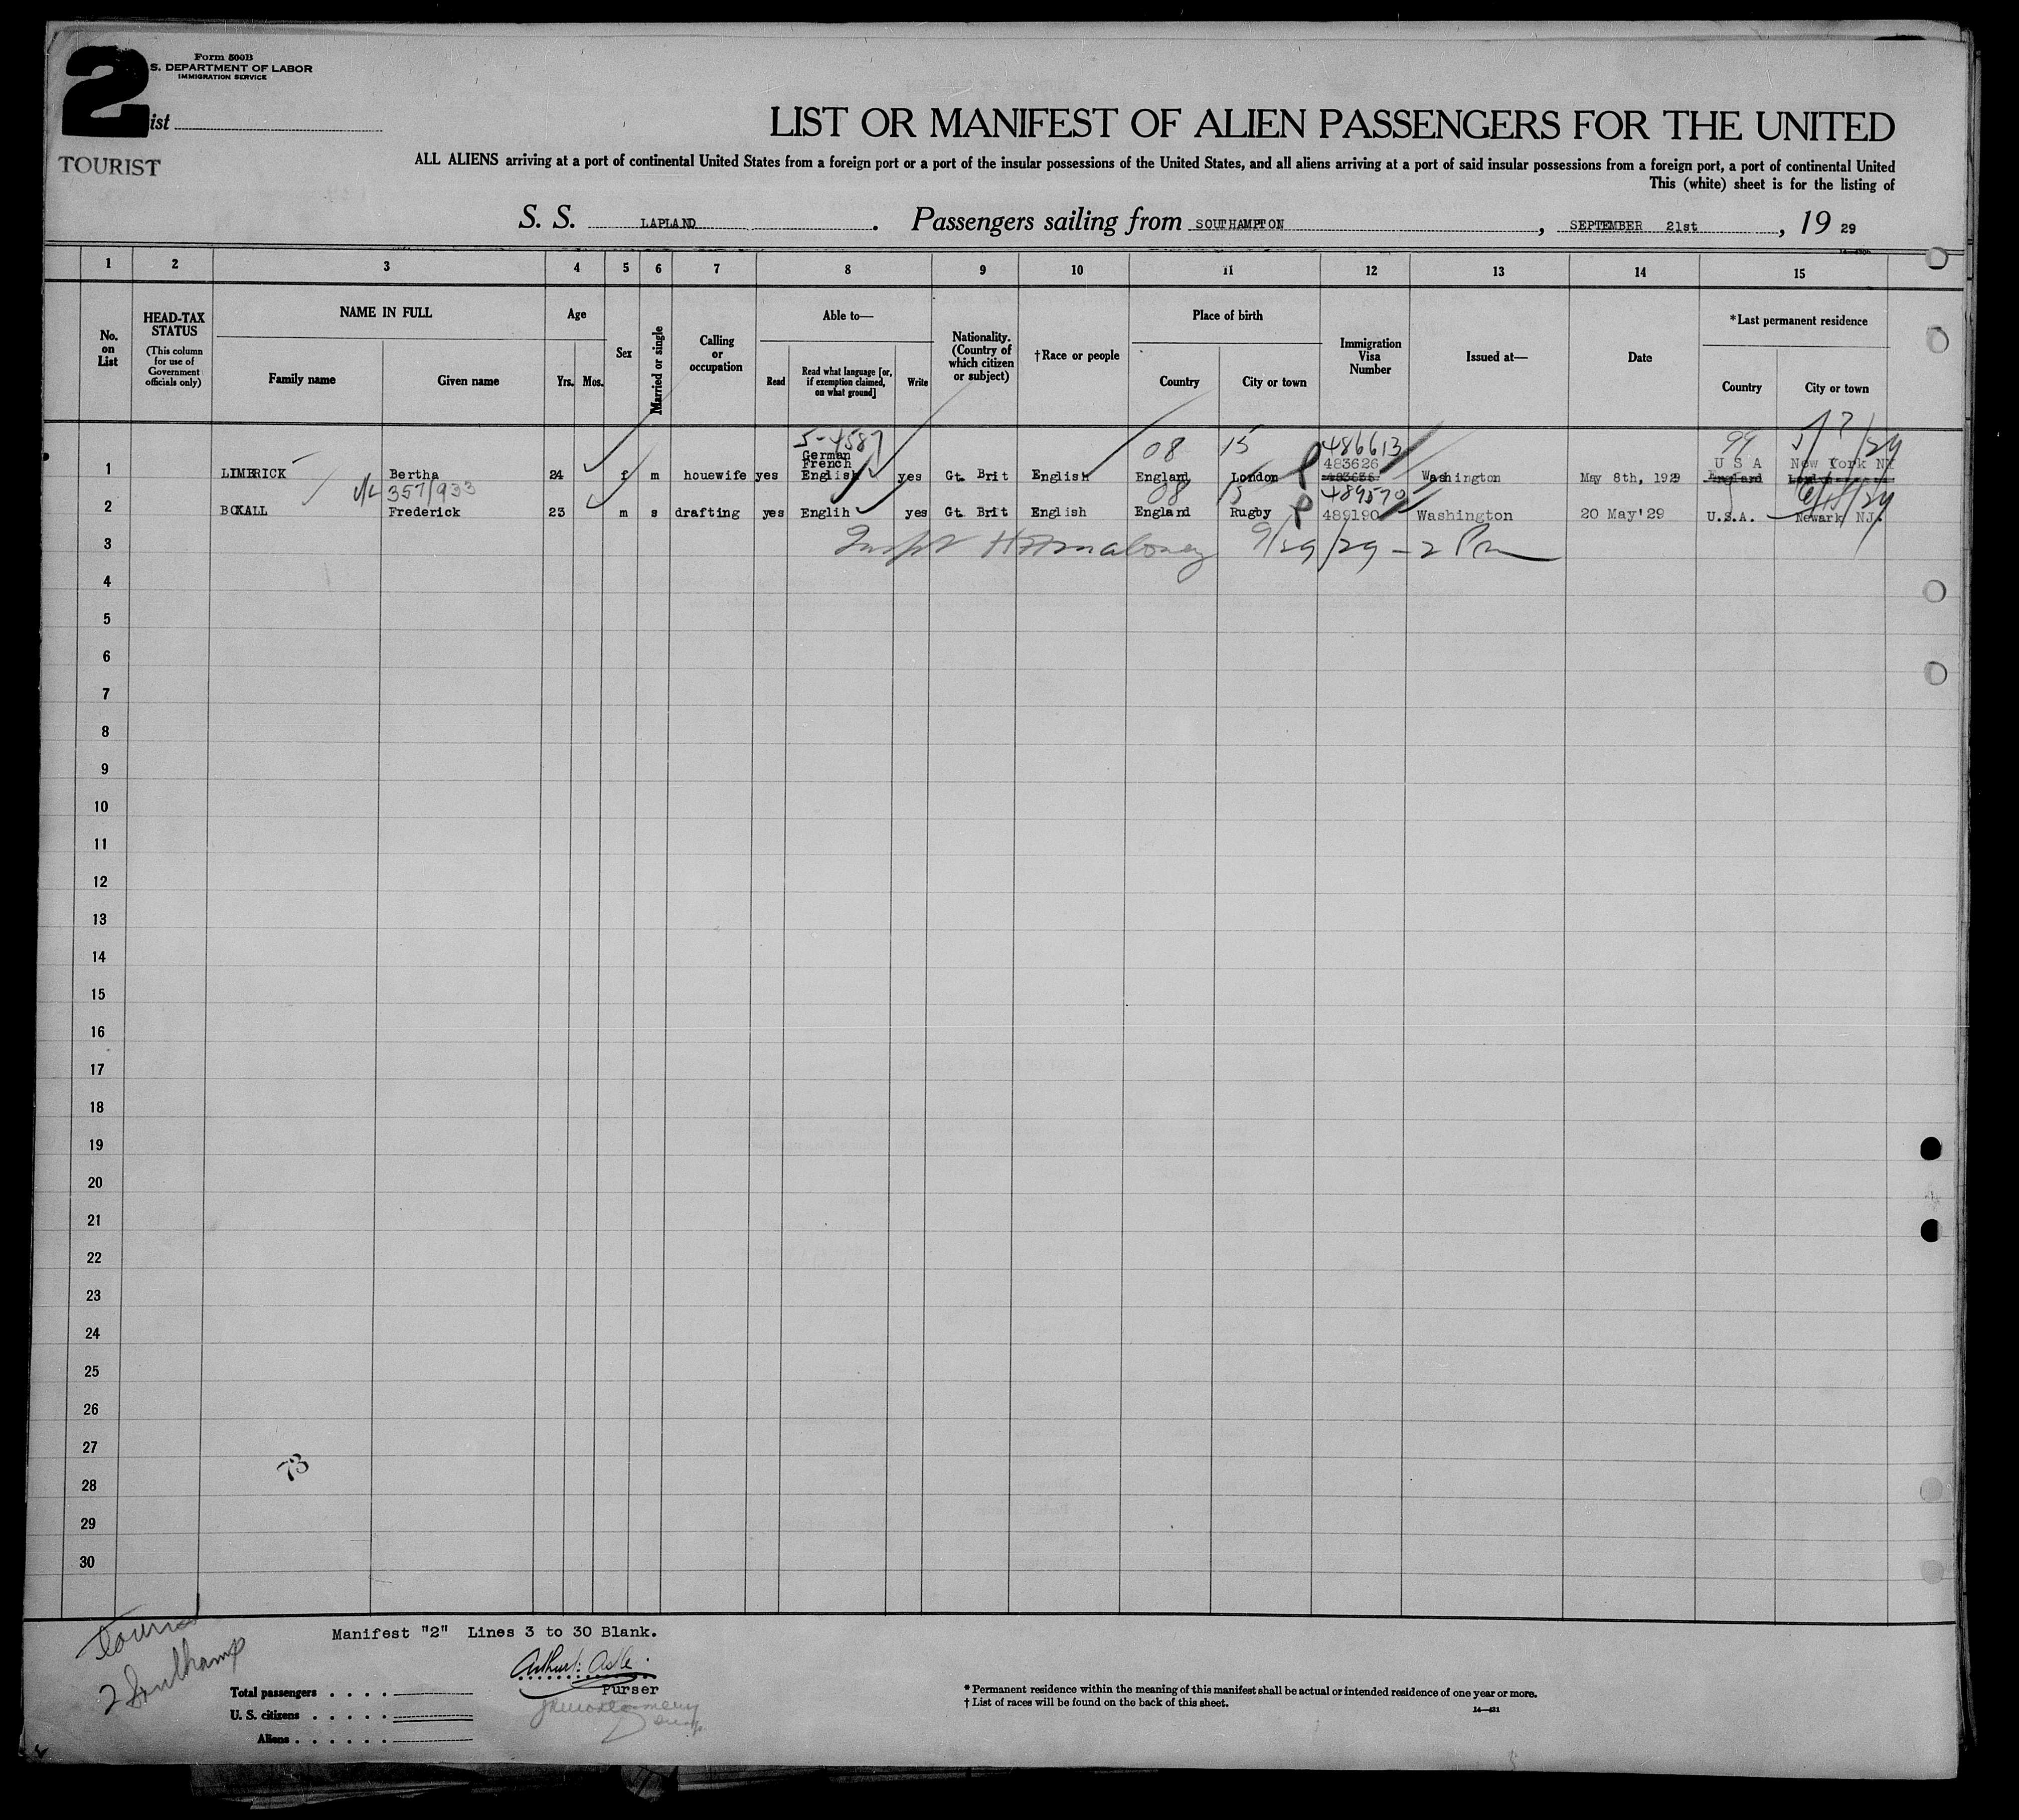 2
Form 500B
S. DEPARTMENT OF LABOR
IMMIGRATION SERVICE
ist
TOURIST
LIST OR MANIFEST OF ALIEN PASSENGERS FOR THE UNITED
ALL ALIENS arriving at a port of continental United States from a foreign port or a port of the insular possessions of the United States, and all aliens arriving at a port of said insular possessions from a foreign port, a port of continental United
This (white) sheet is for the listing of
S. S. LAPLAND. Passengers sailing from SOUTHAMPTON, SEPTEMBER 21st, 19 29
1 2 3 4 5 6 7 8 9 10 11 12 13 14 15
No. on List
HEAD-TAX STATUS
(This column for use of Government officials only)
NAME IN FULL
Family name Given name
Age
Yrs. Mos.
Sex
Married or single
Calling or occupation
Able to—
Read
Read what language [or, if exemption claimed, on what ground]
Write
Nationality. (Country of which citizen or subject)
†Race or people
Place of birth
Country City or town
Immigration Visa Number
Issued at—
Date
*Last permanent residence
Country City or town
5-4587 08 15 486613 99
German
French 483626 U S A New York NY
1 LIMBRICK Bertha 24 f m houewife yes English yes Gt. Brit English England London 483636 Washington May 8th, 1929 England London
357/933 08 15 489570
2 BOXALL Frederick 23 m s drafting yes Englih yes Gt. Brit English England Rugby 489190 Washington 20 May'29 U.S.A. Newark NJ.
3 9/29/29 - 2 Pm
4
5
6
7
8
9
10
11
12
13
14
15
16
17
18
19
20
21
22
23
24
25
26
27
73
28
29
30
Manifest "2" Lines 3 to 30 Blank.
2 Southamp
Purser
Total passengers
U. S. citizens
Aliens
* Permanent residence within the meaning of this manifest shall be actual or intended residence of one year or more.
† List of races will be found on the back of this sheet.
14—431